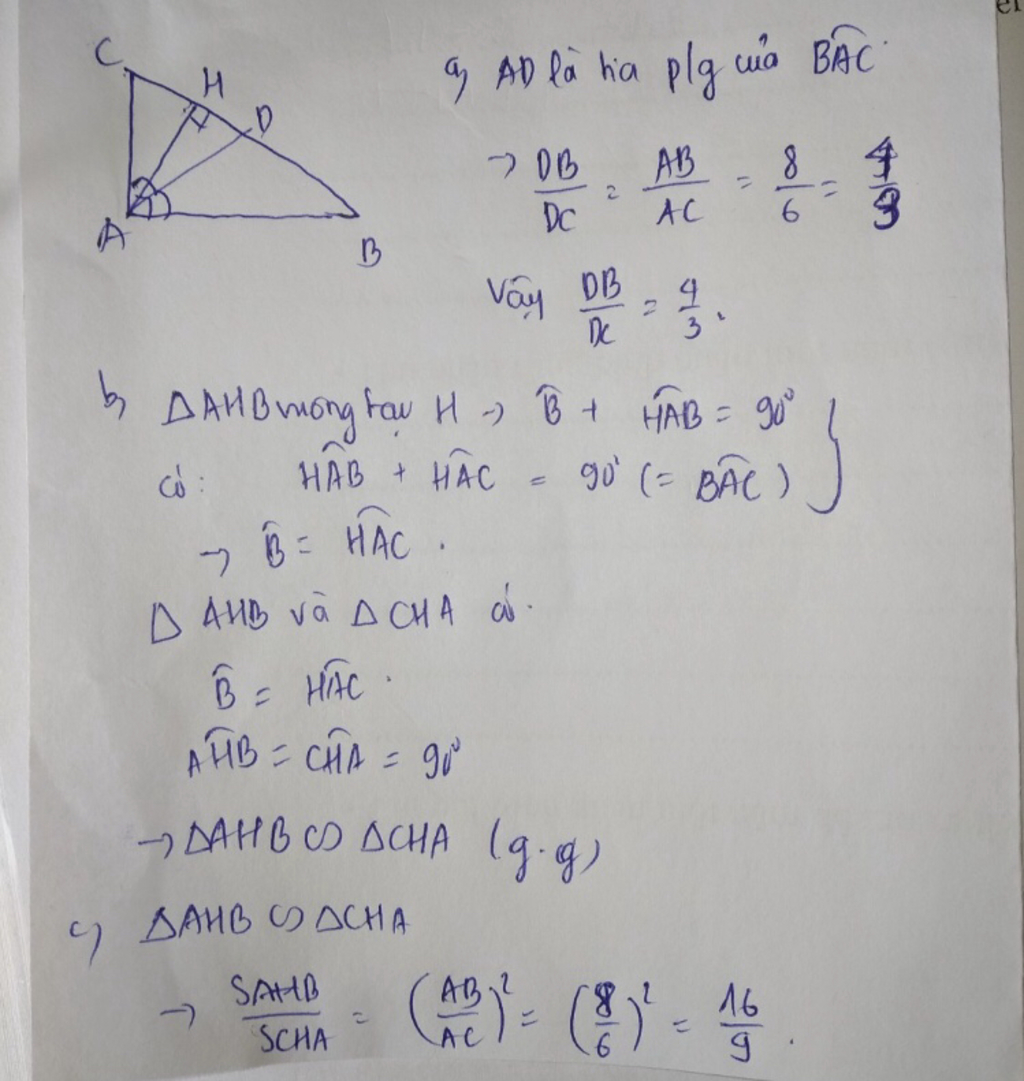 er
C
H
D
A
B
a) AD là tia p/g của BAC
→ DB/DC = AB/AC = 8/6 = 4/3
Vậy DB/DC = 4/3.
b) ΔAHB vuông tại H → B̂ + HÂB = 90°
có: HÂB + HÂC = 90° (= BÂC) }
→ B̂ = HÂC.
Δ AHB và Δ CHA có.
B̂ = HÂC.
AĤB = CĤA = 90°
→ ΔAHB ∽ ΔCHA (g.g)
c) ΔAHB ∽ ΔCHA
→ SAHB/SCHA = (AB/AC)² = (8/6)² = 16/9.